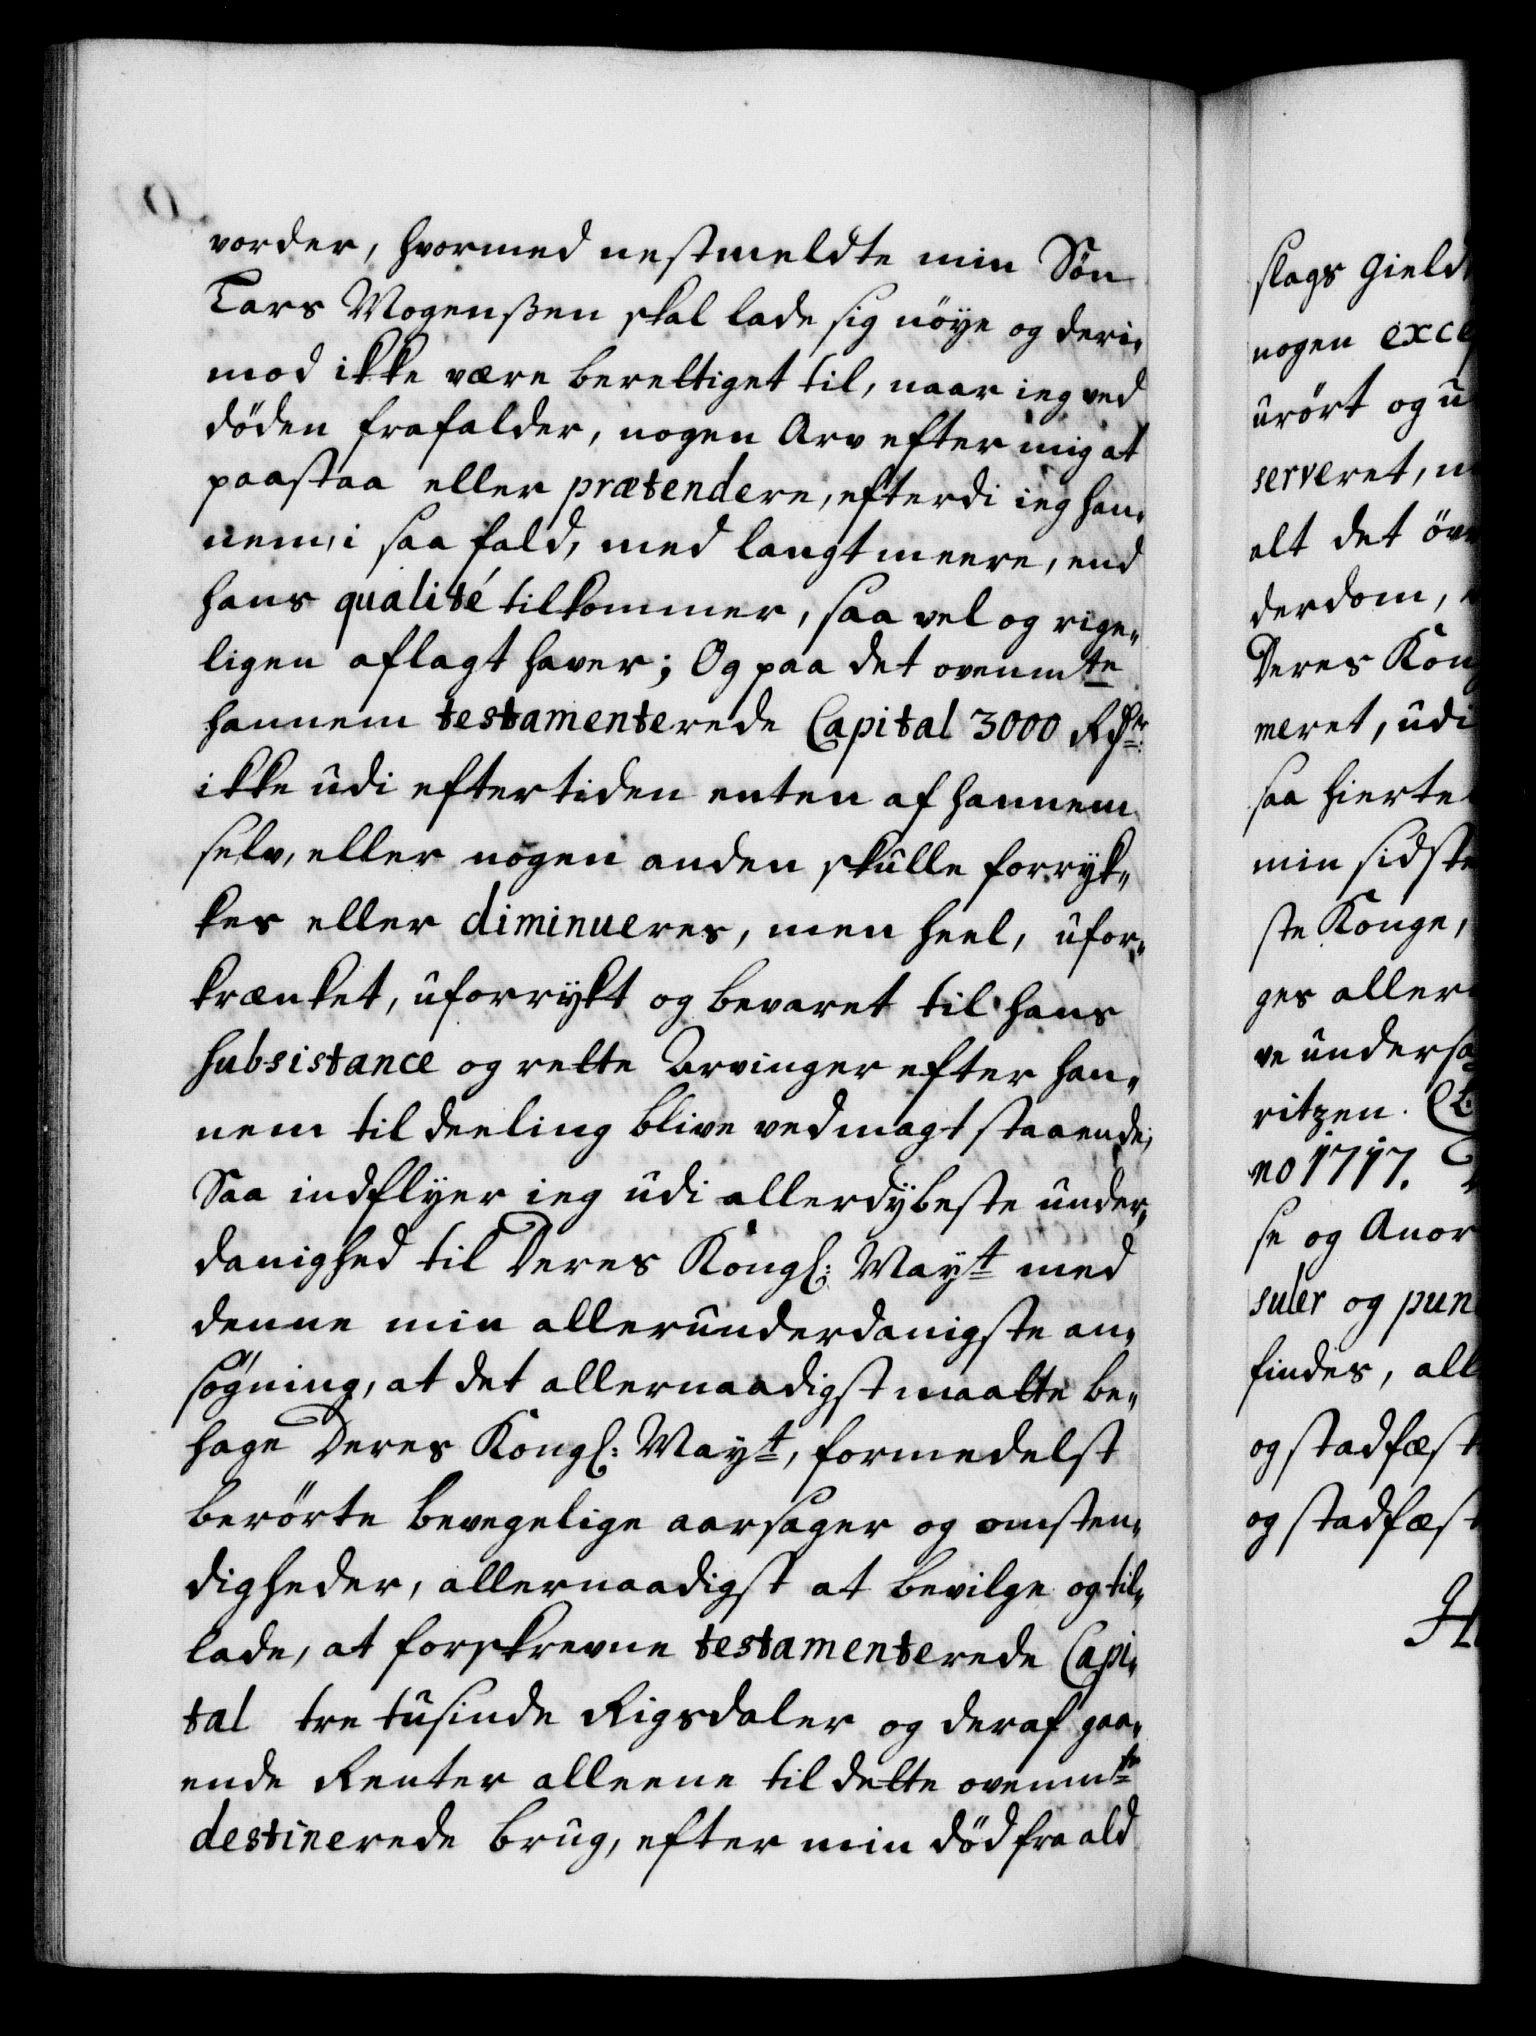 vorder, hvormed nestmeldte min Søn
Lars Mogensßen skal lade sig nöye og deri„
mod ikke være berettiget til, naar ieg ved
döden frafalder, nogen Arv efter mig at
paastaa eller prætendere, efterdi ieg han„
nem, i saa fald, med langt meere, end
hans qualité tilkommer, saa vel og rige„
ligen aflagt haver; Og paa det ovenmte
hannem testamenterede Capital 3000 Rdr:
ikke udi eftertiden enten af hannem
selv, eller nogen anden skulle forryk„
kes eller diminueres, men heel, ufor„
krænket, uforrykt og bevaret til hans
Subsistance og rette Arvinger efter han„
nem til deeling blive ved magt staaende;
Saa indflyer ieg udi allerdybeste under„
danighed til Deres Kongl: Mayt med
denne min allerunderdanigste an„
søgning, at det allernaadigst maatte be„
hage Deres Kongl: Mayt, formedelst
berörte bevegelige aarsager og omsten„
digheder, allernaadigst at bevilge og til„
lade, at forskrevne testamenterede Capi„
tal tre tusinde Rigsdaler og deraf gaa„
ende Renter alleene til dette ovenmte
destinerede brug, efter min död fra ald
slags gield
nogen exce
urört og u
serveret, m
alt det öv
derdom,
Deres Kon
meret, udi
saa hierte
min sidste
ste Konge,
ges aller
ve undersa
ritzen.
no 1717.
se og Anor
suler og pun
findes, all
og stadfæst
og stadfæst